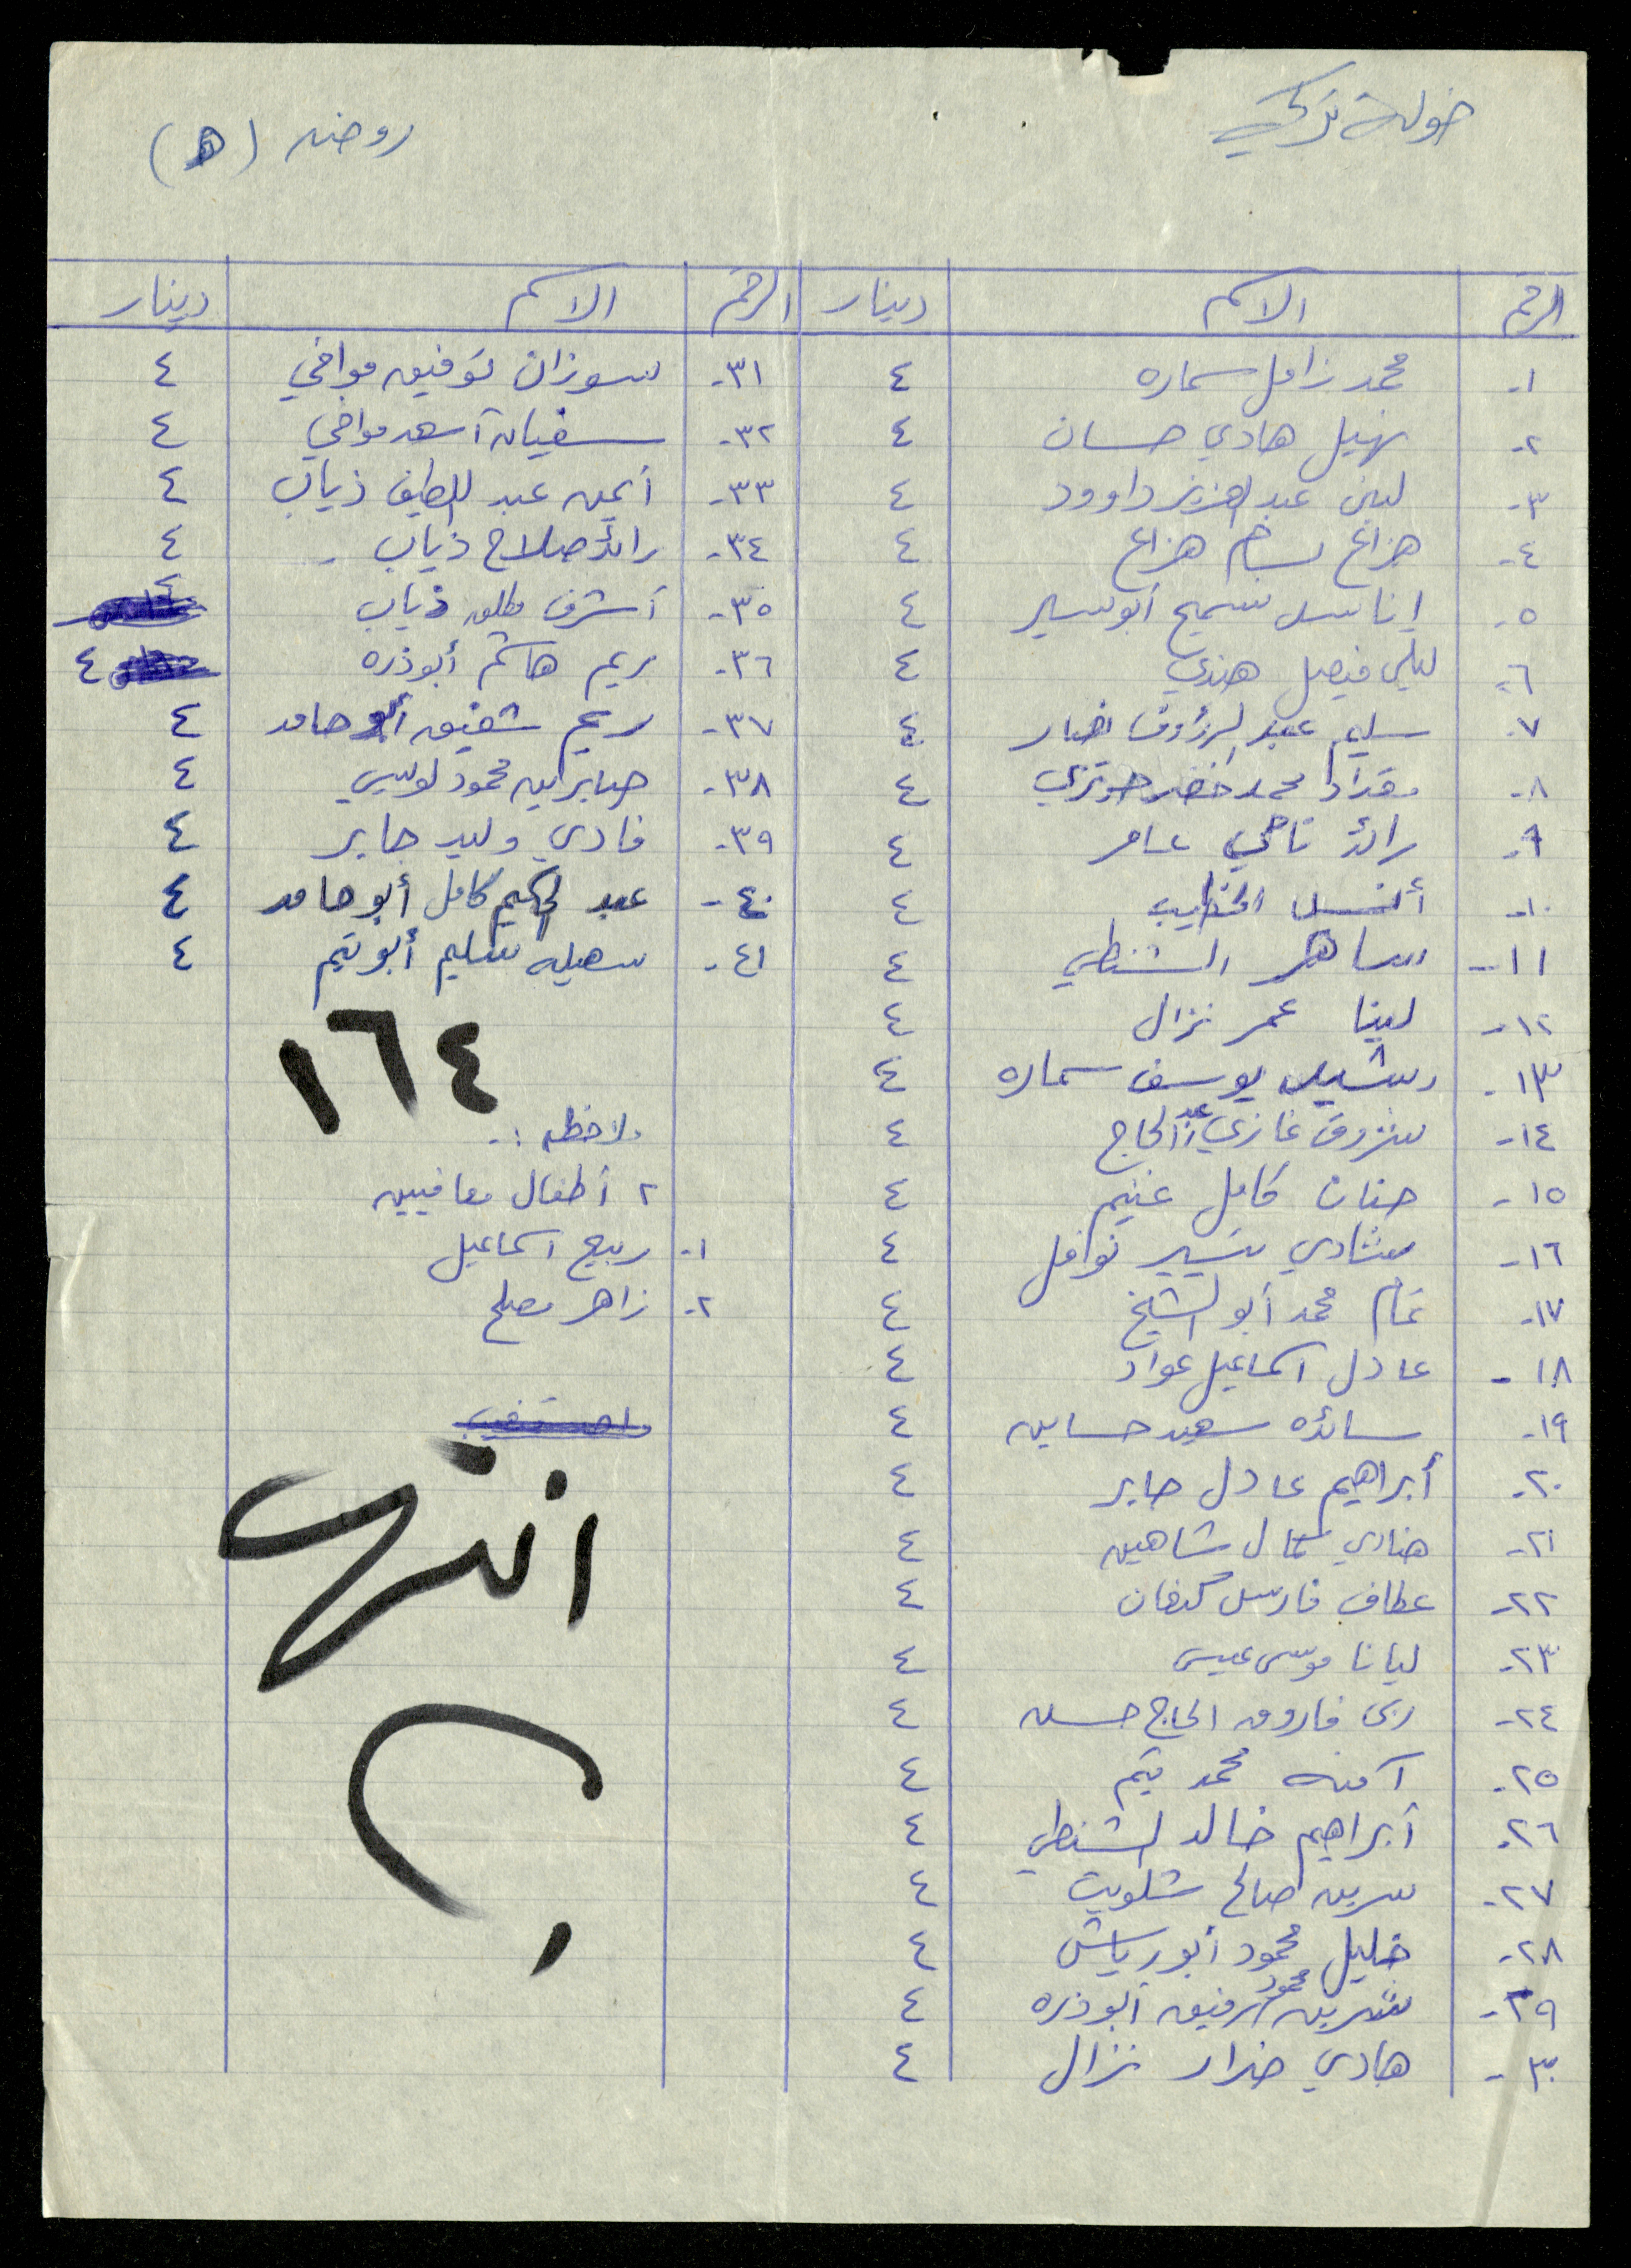 خولة تركي
روضه (ه)
الرقم الاسم دينار
١- محمد زامل سماره ٤
٢- نهيل هادي حسان ٤
٣- لبنى عبد العزيز داوود ٤
٤- هزاع بسام هزاع ٤
٥- إيناس سميح أبو سير ٤
٦- ليلى فيصل هندي ٤
٧- سليم عبد الرؤوف نصار ٤
٨- مقداد محمد خضر حوتري ٤
٩- رائد ناجي عامر ٤
١٠- أنس الخطيب ٤
١١- ساهر الشنطي ٤
١٢- لينا عمر نزال ٤
١٣- رشيد يوسف سماره ٤
١٤- شروق غازي الحاج ٤
١٥- حنان كامل غنيم ٤
١٦- شادي تيسير نوافل ٤
١٧- تمام محمد أبو الشيخ ٤
١٨- عادل اسماعيل عواد ٤
١٩- سائده سعيد حساين ٤
٢٠- أبراهيم عادل جابر ٤
٢١- هنادي كمال شاهين ٤
٢٢- عطاف فارس كنعان ٤
٢٣- ليانا موسى عيسى ٤
٢٤- ربى فاروق الحاج حسن ٤
٢٥- آمنه محمد تيم ٤
٢٦- أبراهيم خالد الشنطي ٤
٢٧- سرين صالح شلويت ٤
٢٨- خليل محمود أبو رياش ٤
٢٩- شرين محمود رفيق أبو ذره ٤
٣٠- هادي ضرار نزال ٤
الرقم الاسم دينار
٣١- سوزان توفيق موافي ٤
٣٢- سفيان أسعد موافي ٤
٣٣- أيمن عبد اللطيف ذياب ٤
٣٤- رائد صلاح ذياب ٤
٣٥- أشرف مطلق ذياب ٤
٣٦- ريم هاشم أبو ذره ٤
٣٧- ريم شفيق أبو حامد ٤
٣٨- صابرين محمود لوسي ٤
٣٩- فادي وليد جابر ٤
٤٠- عبد الحكيم كامل أبو حامد ٤
٤١- سهيله سليم أبو تيم ٤
١٦٤
ملاحظه :-
٢ أطفال معافيين
١- ربيع اسماعيل
٢- زاهر مصلح
انتهى